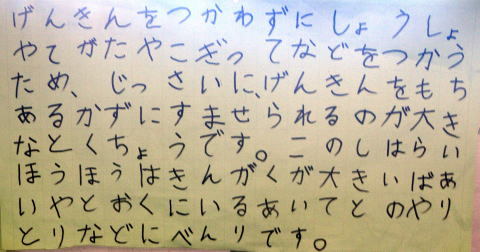 げんきんをつかわずにしょうしょ
やてがたやこぎってなどをつかう
ため、じっさいに、げんきんをもち
あるかずにすませられるのが大き
なとくちょうです。このしはらい
ほうほうはきんがくが大きいばあ
いやとおくにいるあいてとのやり
とりなどにべんりです。